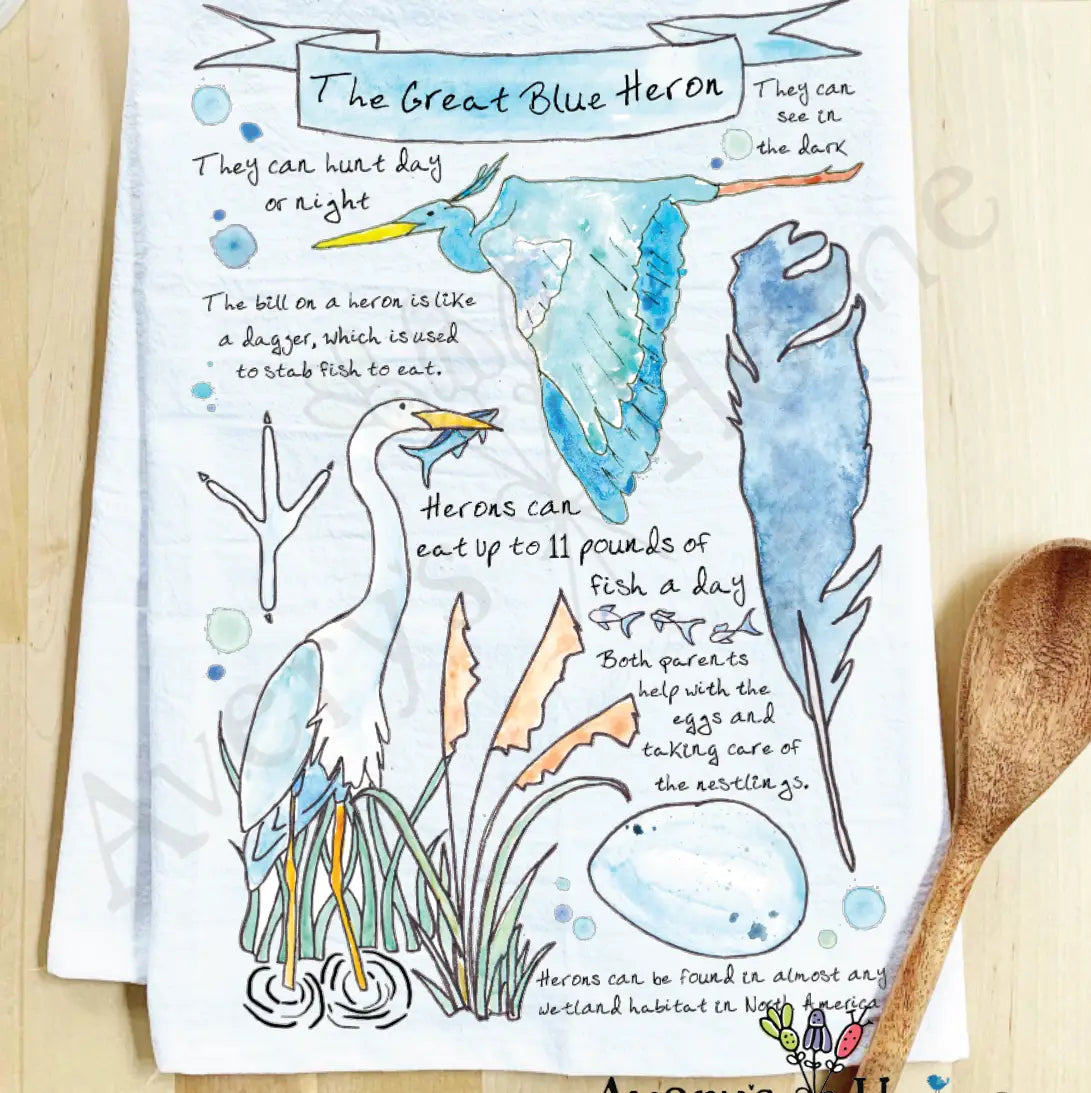 The Great Blue Heron
They can
see in
the dark
They can hunt day
or night
The bill on a heron is like
a dagger, which is used
to stab fish to eat.
Herons can
eat up to 11 pounds of
fish a day
Both parents
help with the
eggs and
taking care of
the nestlings.
Herons can be found in almost any
wetland habitat in North America
Avery's Home